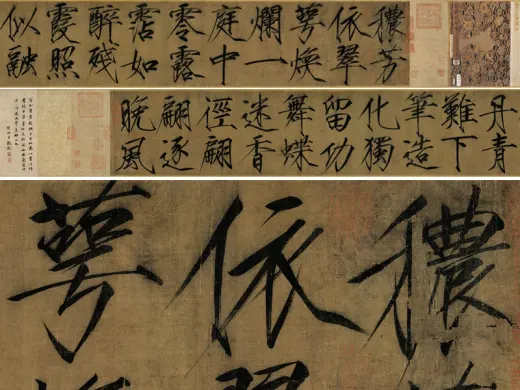 穠芳
依翠
萼煥
爛一
庭中
零露
霑如
醉殘
霞照
似融
丹青
難下
筆造
化獨
留功
舞蝶
迷香
徑翩
翩逐
晚風
穠
依
萼